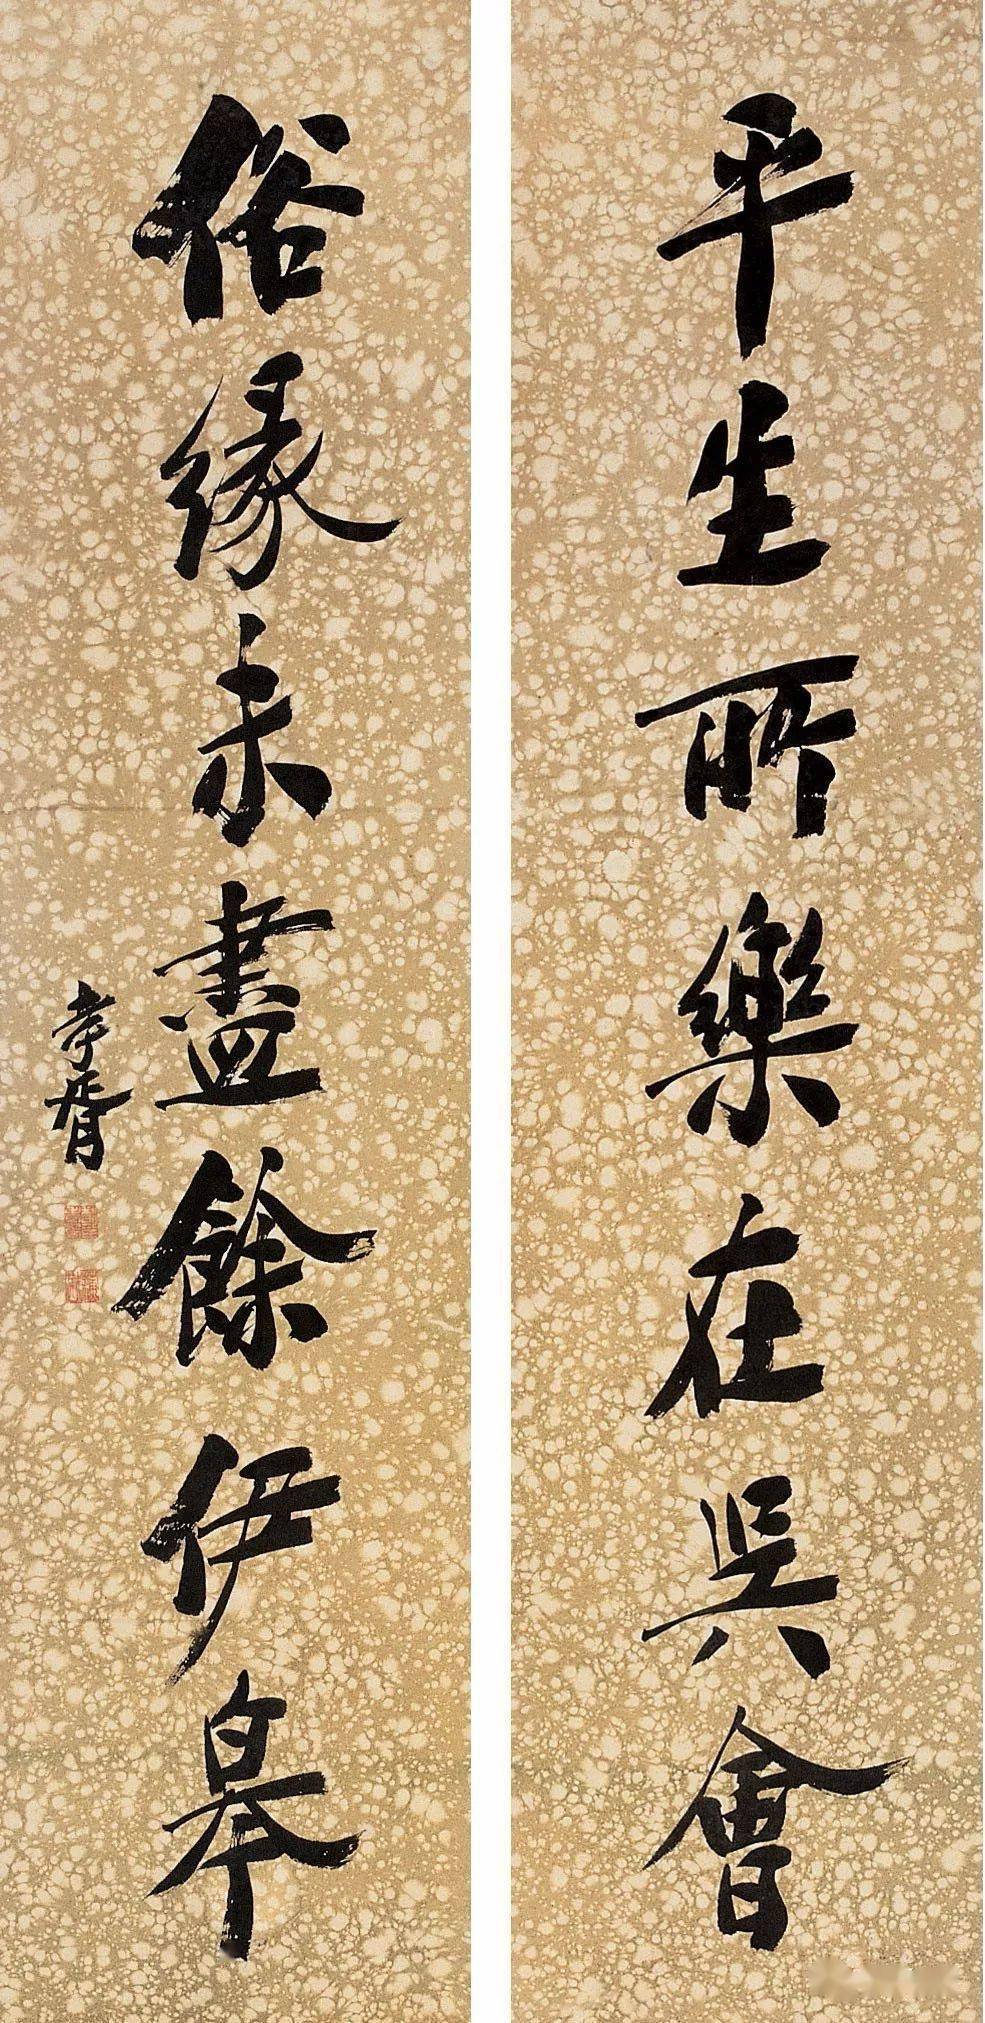 平生所樂在吳會
俗緣未盡餘伊皋
孝胥